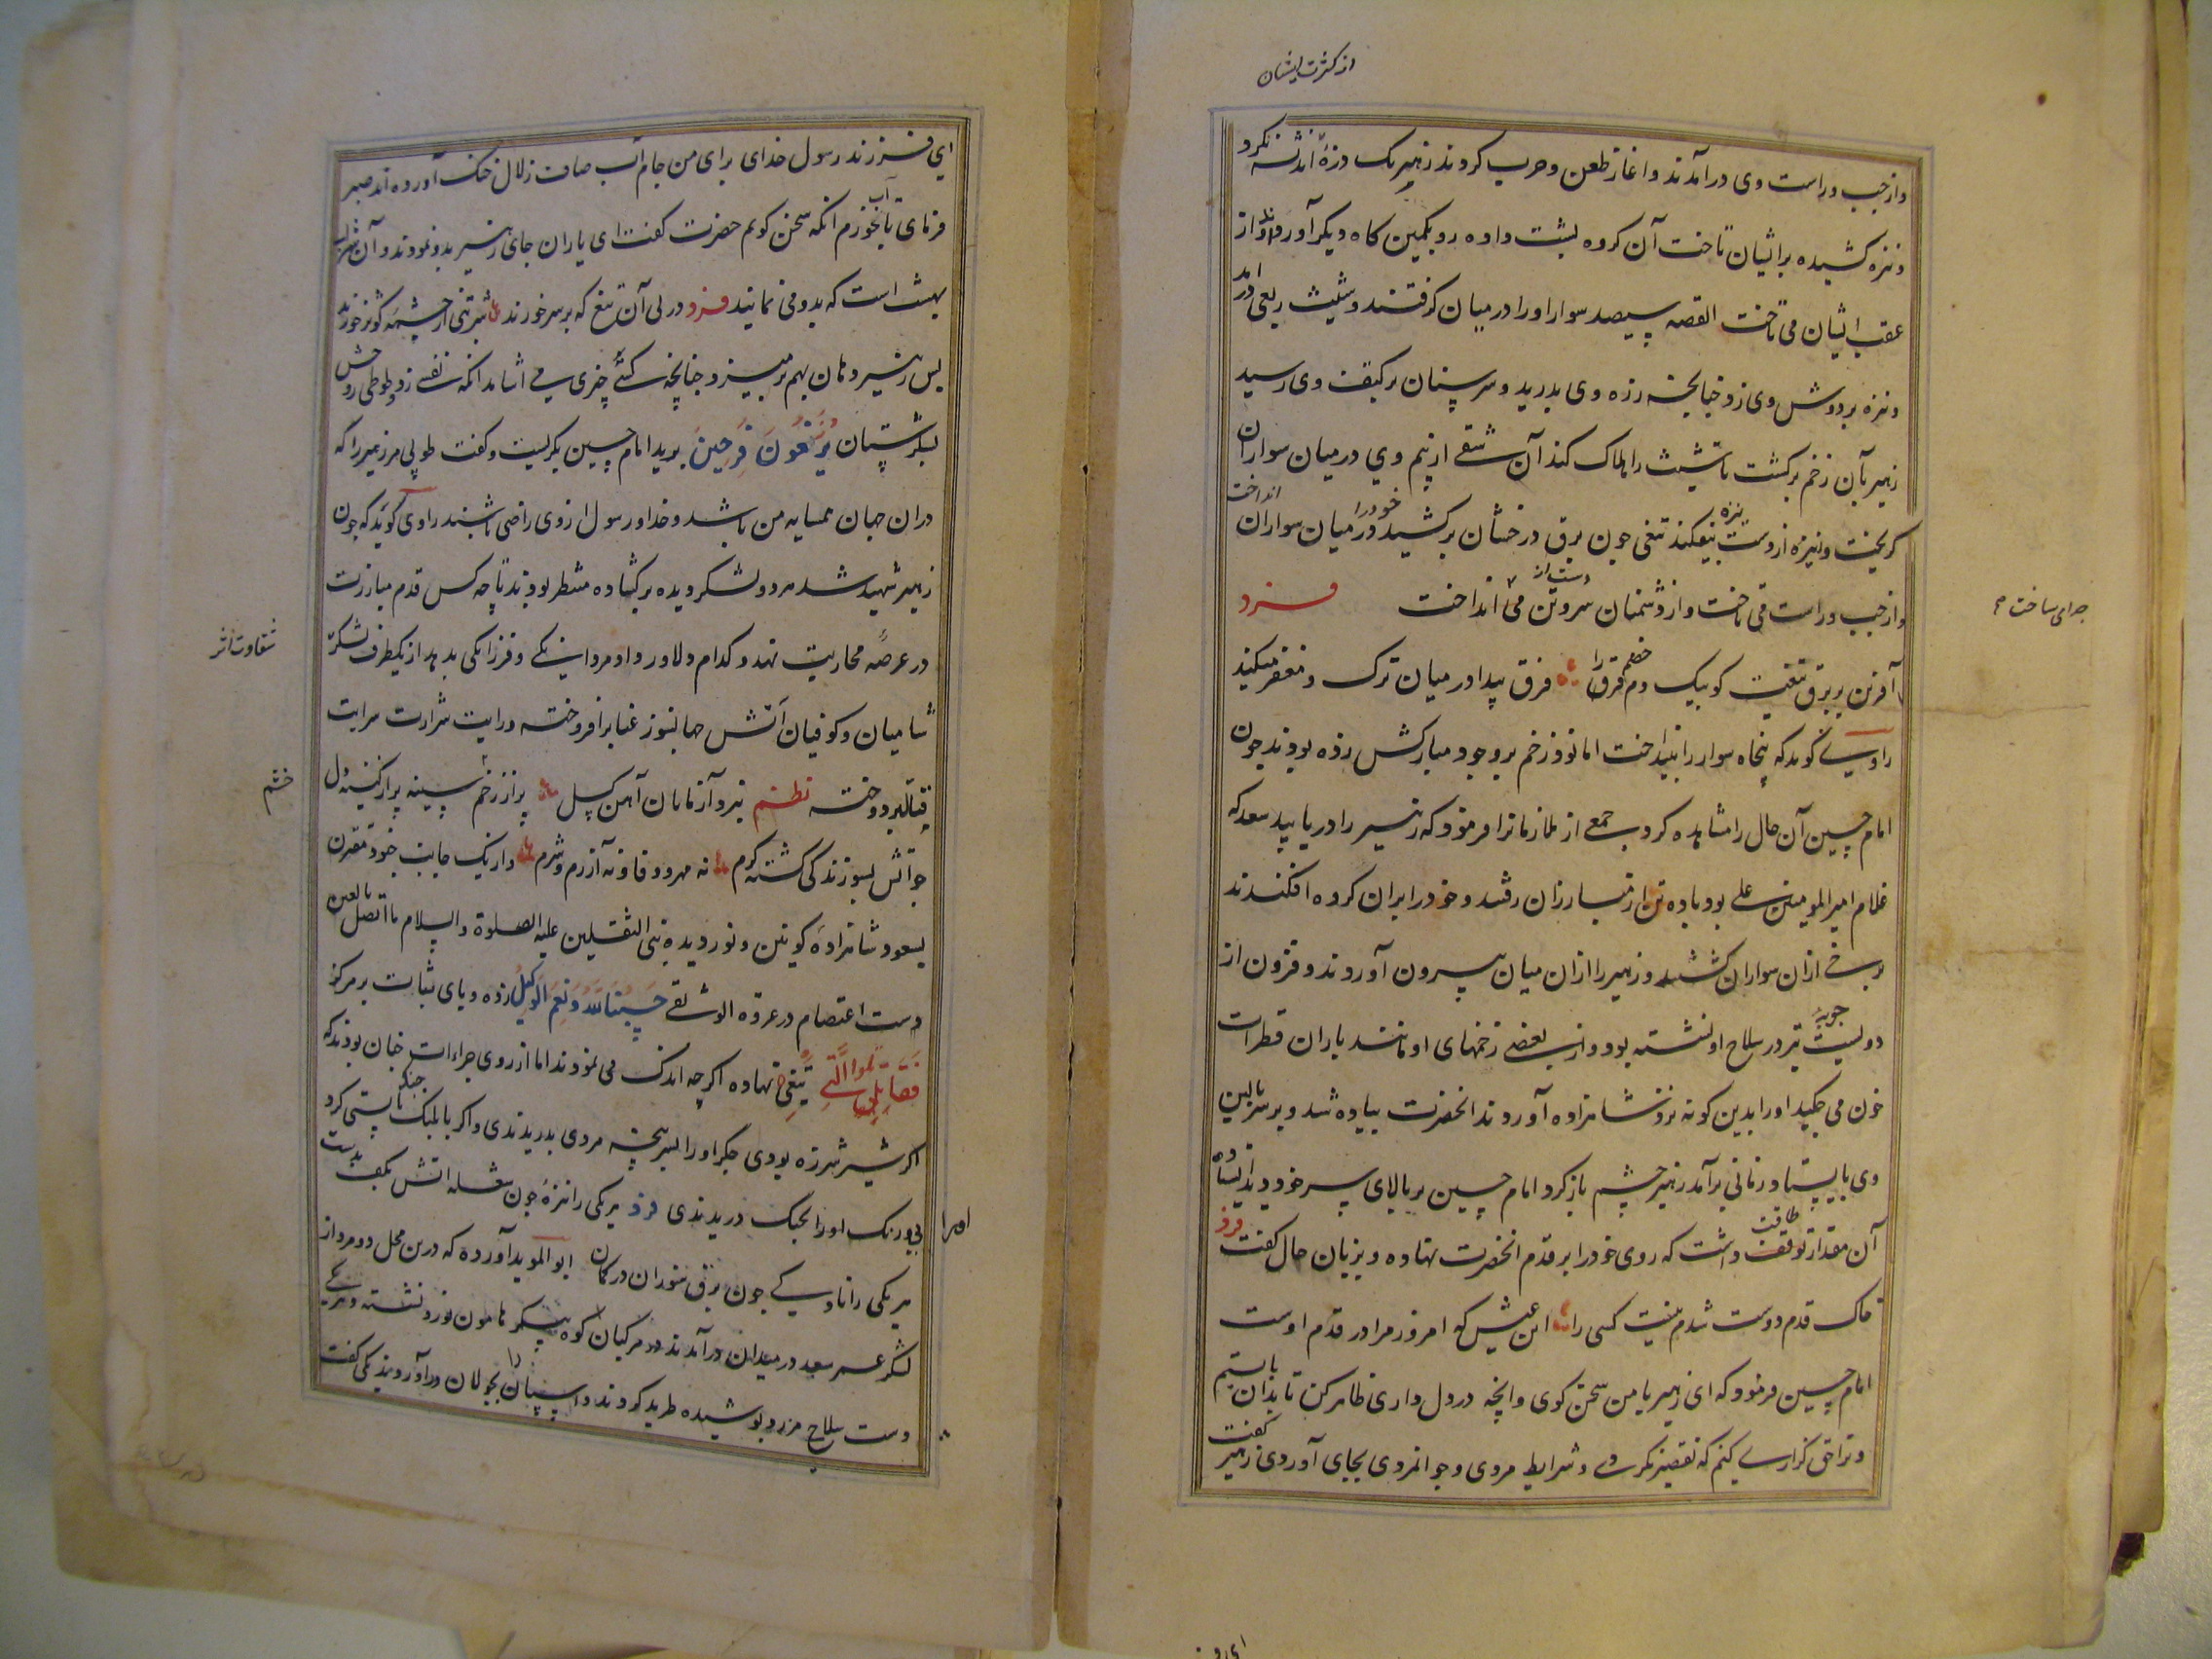 از کثرت ایشان
و از چپ و راست وی درآمدند و آغاز طعن و حرب کردند زهیر یک ذره اندیشه نکرد
و نیزه کشیده بر ایشان تاخت آن کروه پشت داده رو بکمین کاه دیکر آوردند و از
عقب ایشان می تاخت القصه سیصد سوار او را در میان کرفتند و شیث ربعی درامد
و نیزه بر دوش وی زد چنانچه زره وی بدرید و سر سنان بر کتف وی رسید
زهیر بآن زخم برکشت تا شیث را هلاک کند آن شقی از بیم وی در میان سواران
کریخت و زهیر نیزه از دست بیفکند تیغی چون برق درخشان برکشید و خود را در میان سواران انداخت
و از چپ و راست می تاخت و از دشمنان سر و تن می انداخت فرد
چرامی ساخت
آفرین بر برق تیغت کو بیک دم خصم را فرق پیدا در میان ترک و مغفر میکند
راوی کوید که پنجاه سوار را بینداخت اما نود زخم بر وجود مبارکش زده بودند چون
امام حسین آن حال را مشاهده کرد جمعی از ملازمانرا فرمود که زهیر را دریابید سعد که
غلام امیرالمومنین علی بود با ده تن از مبارزان رفتند و خود را بر آن کروه افکندند
برخی از آن سواران کشتند و زهیر را از آن میان بیرون آوردند و فزون از
دویست چوبه تیر در سلاح او نشسته بود و از بعضی زخمهای او مانند باران قطرات
خون می چکید او را بدین کونه نزد شاهزاده آوردند انحضرت پیاده شد و بر سر بالین
وی بایستاد و زمانی برآمد زهیر چشم باز کرد امام حسین بر بالای سر خود دید ایستاده
آن مقدار طاقت داشت که روی خود را بر قدم انحضرت نهاده و بزبان حال کفت فرد
خاک قدم دوست شدم نیست کسی را این عیش که امروز مرا در قدم اوست
امام حسین فرمود که ای زهیر با من سخن کوی و انچه در دل داری ظاهر کن تا بدان بایستم
و ترا حق کزاری کنم که تقصیر نکردی و شرایط مردی و جوانمردی بجای آوردی زهیر کفت
ای فرزند رسول خدای برای من جام آب صاف زلال خنک آورده اند صبر
فرمای تا آب بخورم انکه سخن کویم حضرت کفت ای یاران جای زهیر بدو نمودند و آن شراب
بهشت است که بدو می نمایند فرد در پی آن تیغ که بر سر خورند شربتی از چشمه کوثر خورند
پس زهیر دهان بهم بر میزد چنانچه کسی چیزی می اشامد انکه نفسی زد و طوطی روحش
بشکرستان یرزقون فرحین پرید امام حسین بکریست و کفت طوبی مر زهیر را که
در ان جهان همسایه من باشد و خدا و رسول از وی راضی باشند راوی کوید که چون
زهیر شهید شد هر دو لشکر دیده برکشاده منتظر بودند تا چه کس قدم مبارزت
در عرصه محاربت نهد و کدام دلاور داد مردانکی و فرزانکی بدهد از یکطرف لشکر
شقاوت اثر
شامیان و کوفیان آتش جهانسوز عناد برافروخته و رایت شرارت سرایت
قتال برافراخته نظم نیرو آزمایان آهن کسل پر از زخم سینه پر از کینه دل
خشم
چو آتش بسوزندکی کشته کرم نه مهر و وفا و نه آزرم و شرم و از یک جانب خود مقرن
بسعود شاهزاده کونین و نور دیده نبی الثقلین علیه الصلوة والسلام ما اتصل بالعین
دست اعتصام در عروه الوثقی حسبنا الله و نعم الوکیل زده و پای ثبات بر مرکز
فقاتلوا التی تبغی نهاده اکرچه اندک می نمودند اما از روی جراءات چنان بودند که
اکر شیر شرزه بودی جکر او را بسر پنجه مردی بدریدندی و اکر با پلنک جنک بایستی کرد
بی درنک او را بجنک دریدندی فرد هر یکی را نیزه چون شعله اتش بکف بدست
هر یکی را ناوکی چون برق سوزان در کمان ابوالموید آورده که درین محل دو مرد از
امرا
لشکر عمر سعد در میدان درآمدند بر مرکبان کوه پیکر هامون نورد نشسته و هر یکی
دست سلاح مزرد پوشیده طرید کردند و اسپان را بجولان درآوردند یکی کفت